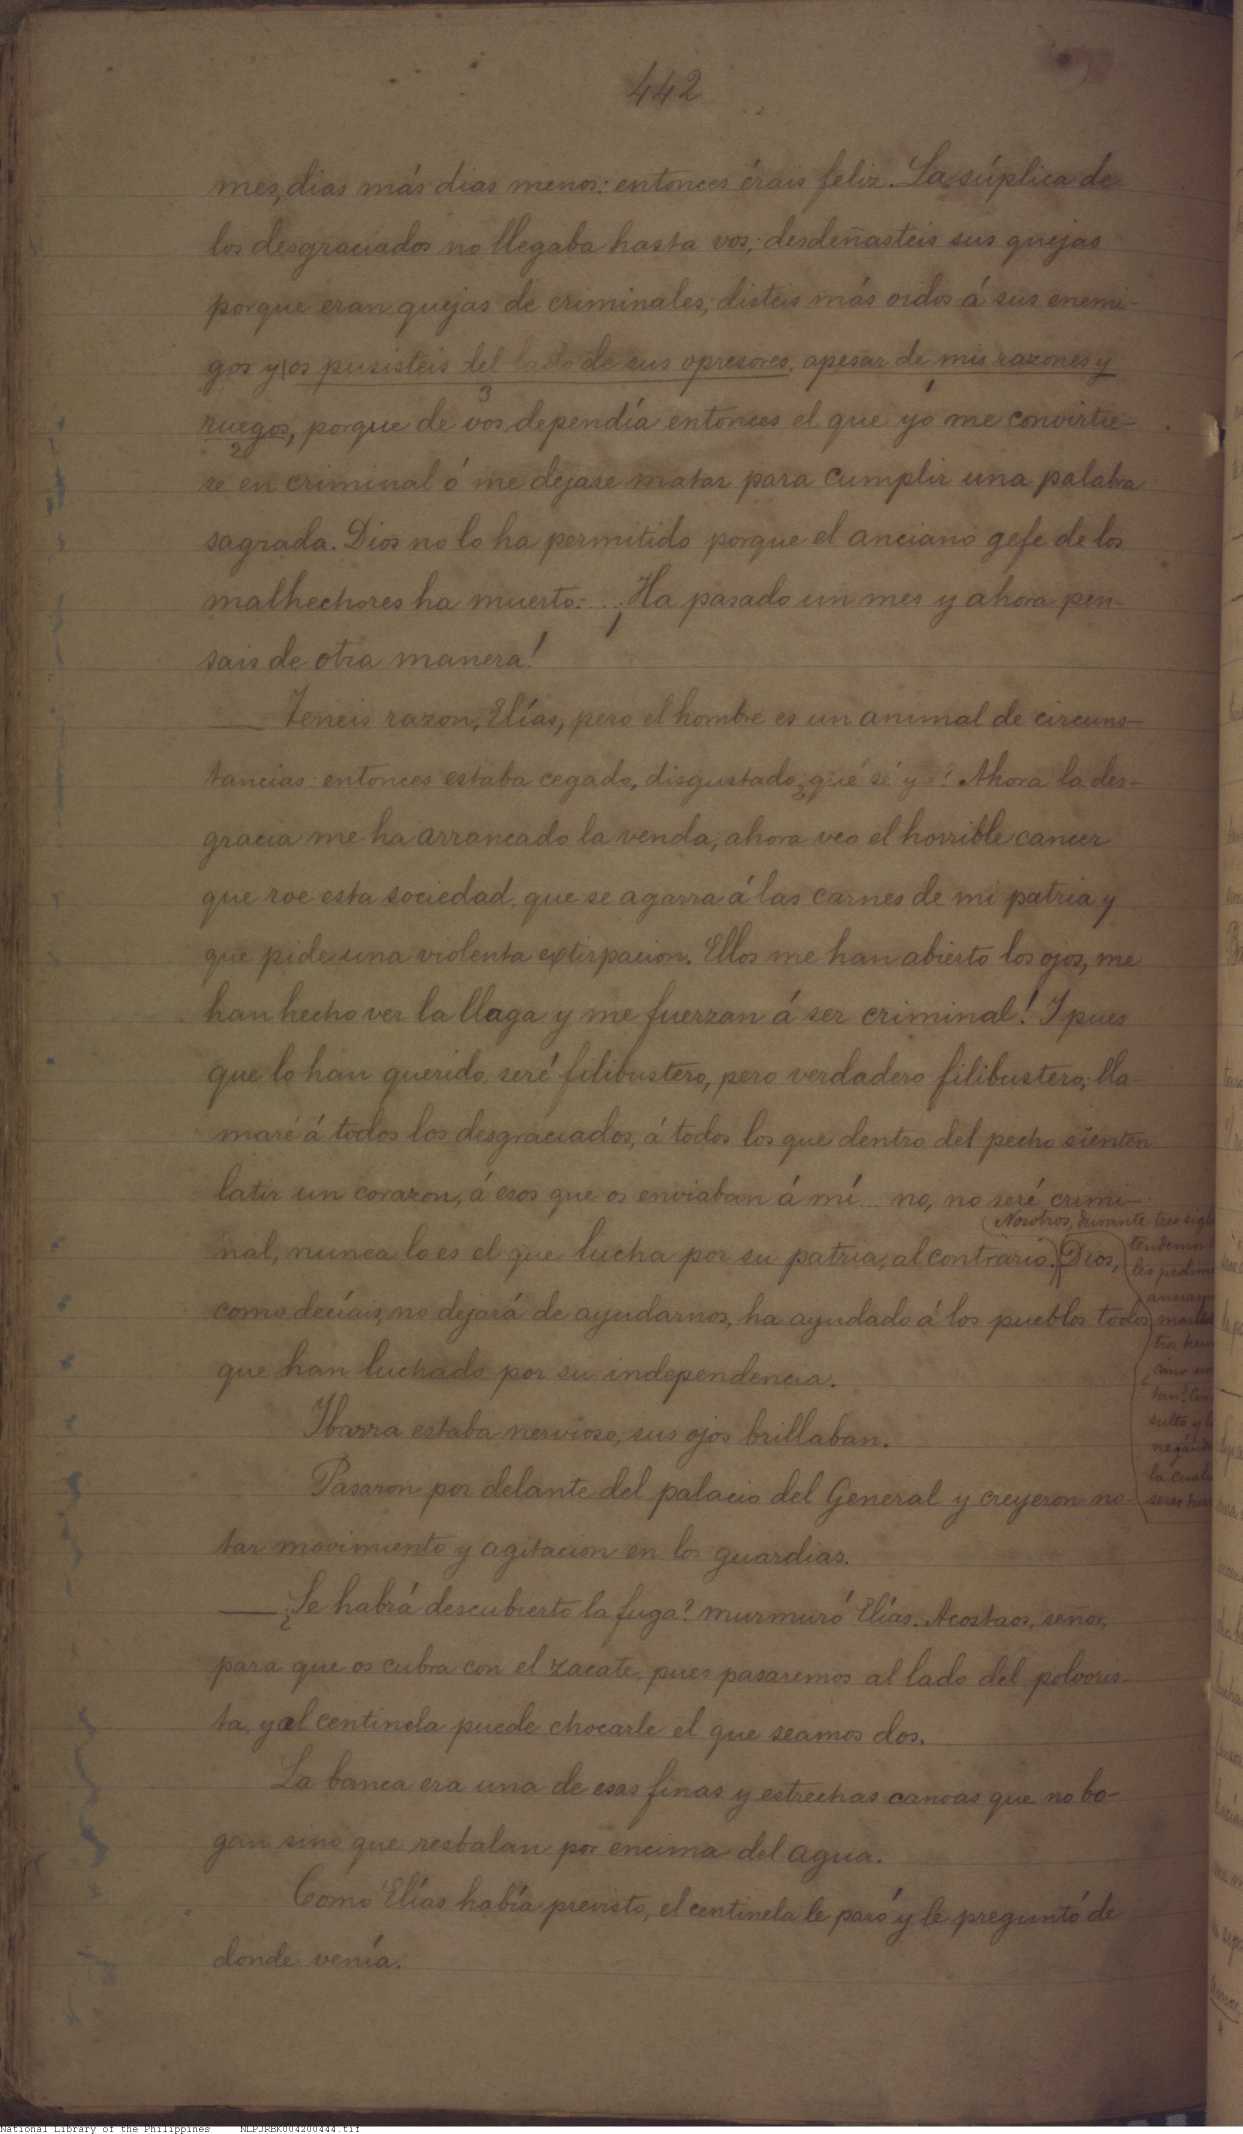 442
mes, dias más dias menos: entonces érais feliz. La súplica de
los desgraciados no llegaba hasta vos; desdeñasteis sus quejas
porque eran quejas de criminales; disteis más oidos á sus enemi-
gos y os pusisteis del lado de sus opresores, apesar de mis razones y
ruegos, porque de vos dependía entonces el que yo me convirtie-
se en criminal ó me dejase matar para cumplir una palabra
sagrada. Dios no lo ha permitido porque el anciano gefe de los
malhechores ha muerto.... ¡Ha pasado un mes y ahora pen-
sais de otra manera!
— Teneis razon, Elías, pero el hombre es un animal de circuns-
tancias: entonces estaba cegado, disgustado ¿qué sé yo? Ahora la des-
gracia me ha arrancado la venda; ahora veo el horrible cancer
que roe esta sociedad, que se agarra á las carnes de mi patria y
que pide una violenta extirpacion. Ellos me han abierto los ojos, me
han hecho ver la llaga y me fuerzan á ser criminal! Y pues
que lo han querido, seré filibustero, pero verdadero filibustero; lla-
maré á todos los desgraciados, á todos los que dentro del pecho sienten
latir un corazon, á esos que os enviaban á mí... no, no seré crimi-
nal, nunca lo es el que lucha por su patria, al contrario. Dios,
(Nosotros, durante tres sigl
tendemo
les pedim
como decíais, no dejará de ayudarnos, ha ayudado á los pueblos todos
que han luchado por su independencia.
tan! 
sulto y
negánd
la cual
seres hu
Ibarra estaba nervioso, sus ojos brillaban.
Pasaron por delante del palacio del General y creyeron no-
tar movimiento y agitacion en los guardias.
— ¿Se habrá descubierto la fuga? murmuró Elías. Acostaos, señor,
para que os cubra con el zacate, pues pasaremos al lado del polvoris-
ta, y al centinela puede chocarle el que seamos dos.
La banca era una de esas finas y estrechas canoas que no bo-
gan sino que resbalan por encima del agua.
Como Elías había previsto, el centinela le paró y le preguntó de
donde venía.
National Library of the Philippines NLPJRBK004200444.tif